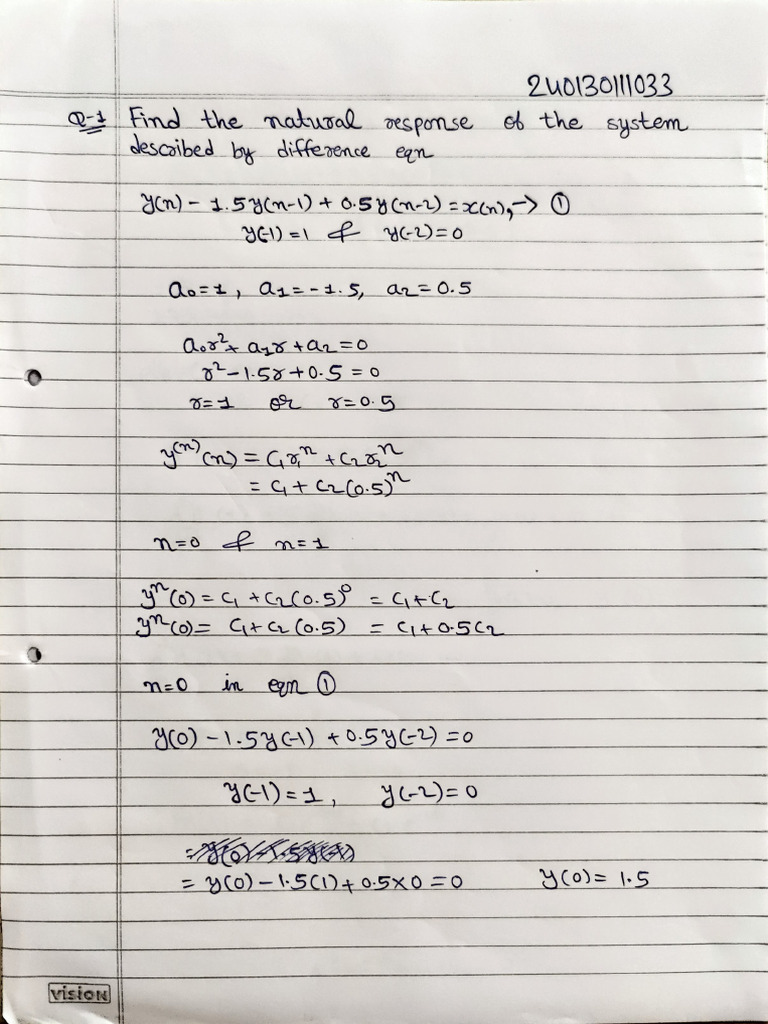 240130111033
Q-1 Find the natural response of the system
described by difference eqn
y(n) - 1.5y(n-1) + 0.5y(n-2) = x(n), → ①
y(-1) = 1 & y(-2) = 0
a₀ = 1, a₁ = -1.5, a₂ = 0.5
a₀r² + a₁r + a₂ = 0
r² - 1.5r + 0.5 = 0
r = 1 or r = 0.5
y⁽ⁿ⁾(n) = C₁r₁ⁿ + C₂r₂ⁿ
= C₁ + C₂(0.5)ⁿ
n=0 & n=1
yⁿ(0) = C₁ + C₂(0.5)⁰ = C₁ + C₂
yⁿ(0) = C₁ + C₂(0.5) = C₁ + 0.5C₂
n=0 in eqn ①
y(0) - 1.5y(-1) + 0.5y(-2) = 0
y(-1) = 1, y(-2) = 0
= y(0) - 1.5(1) + 0.5×0 = 0 y(0) = 1.5
vision